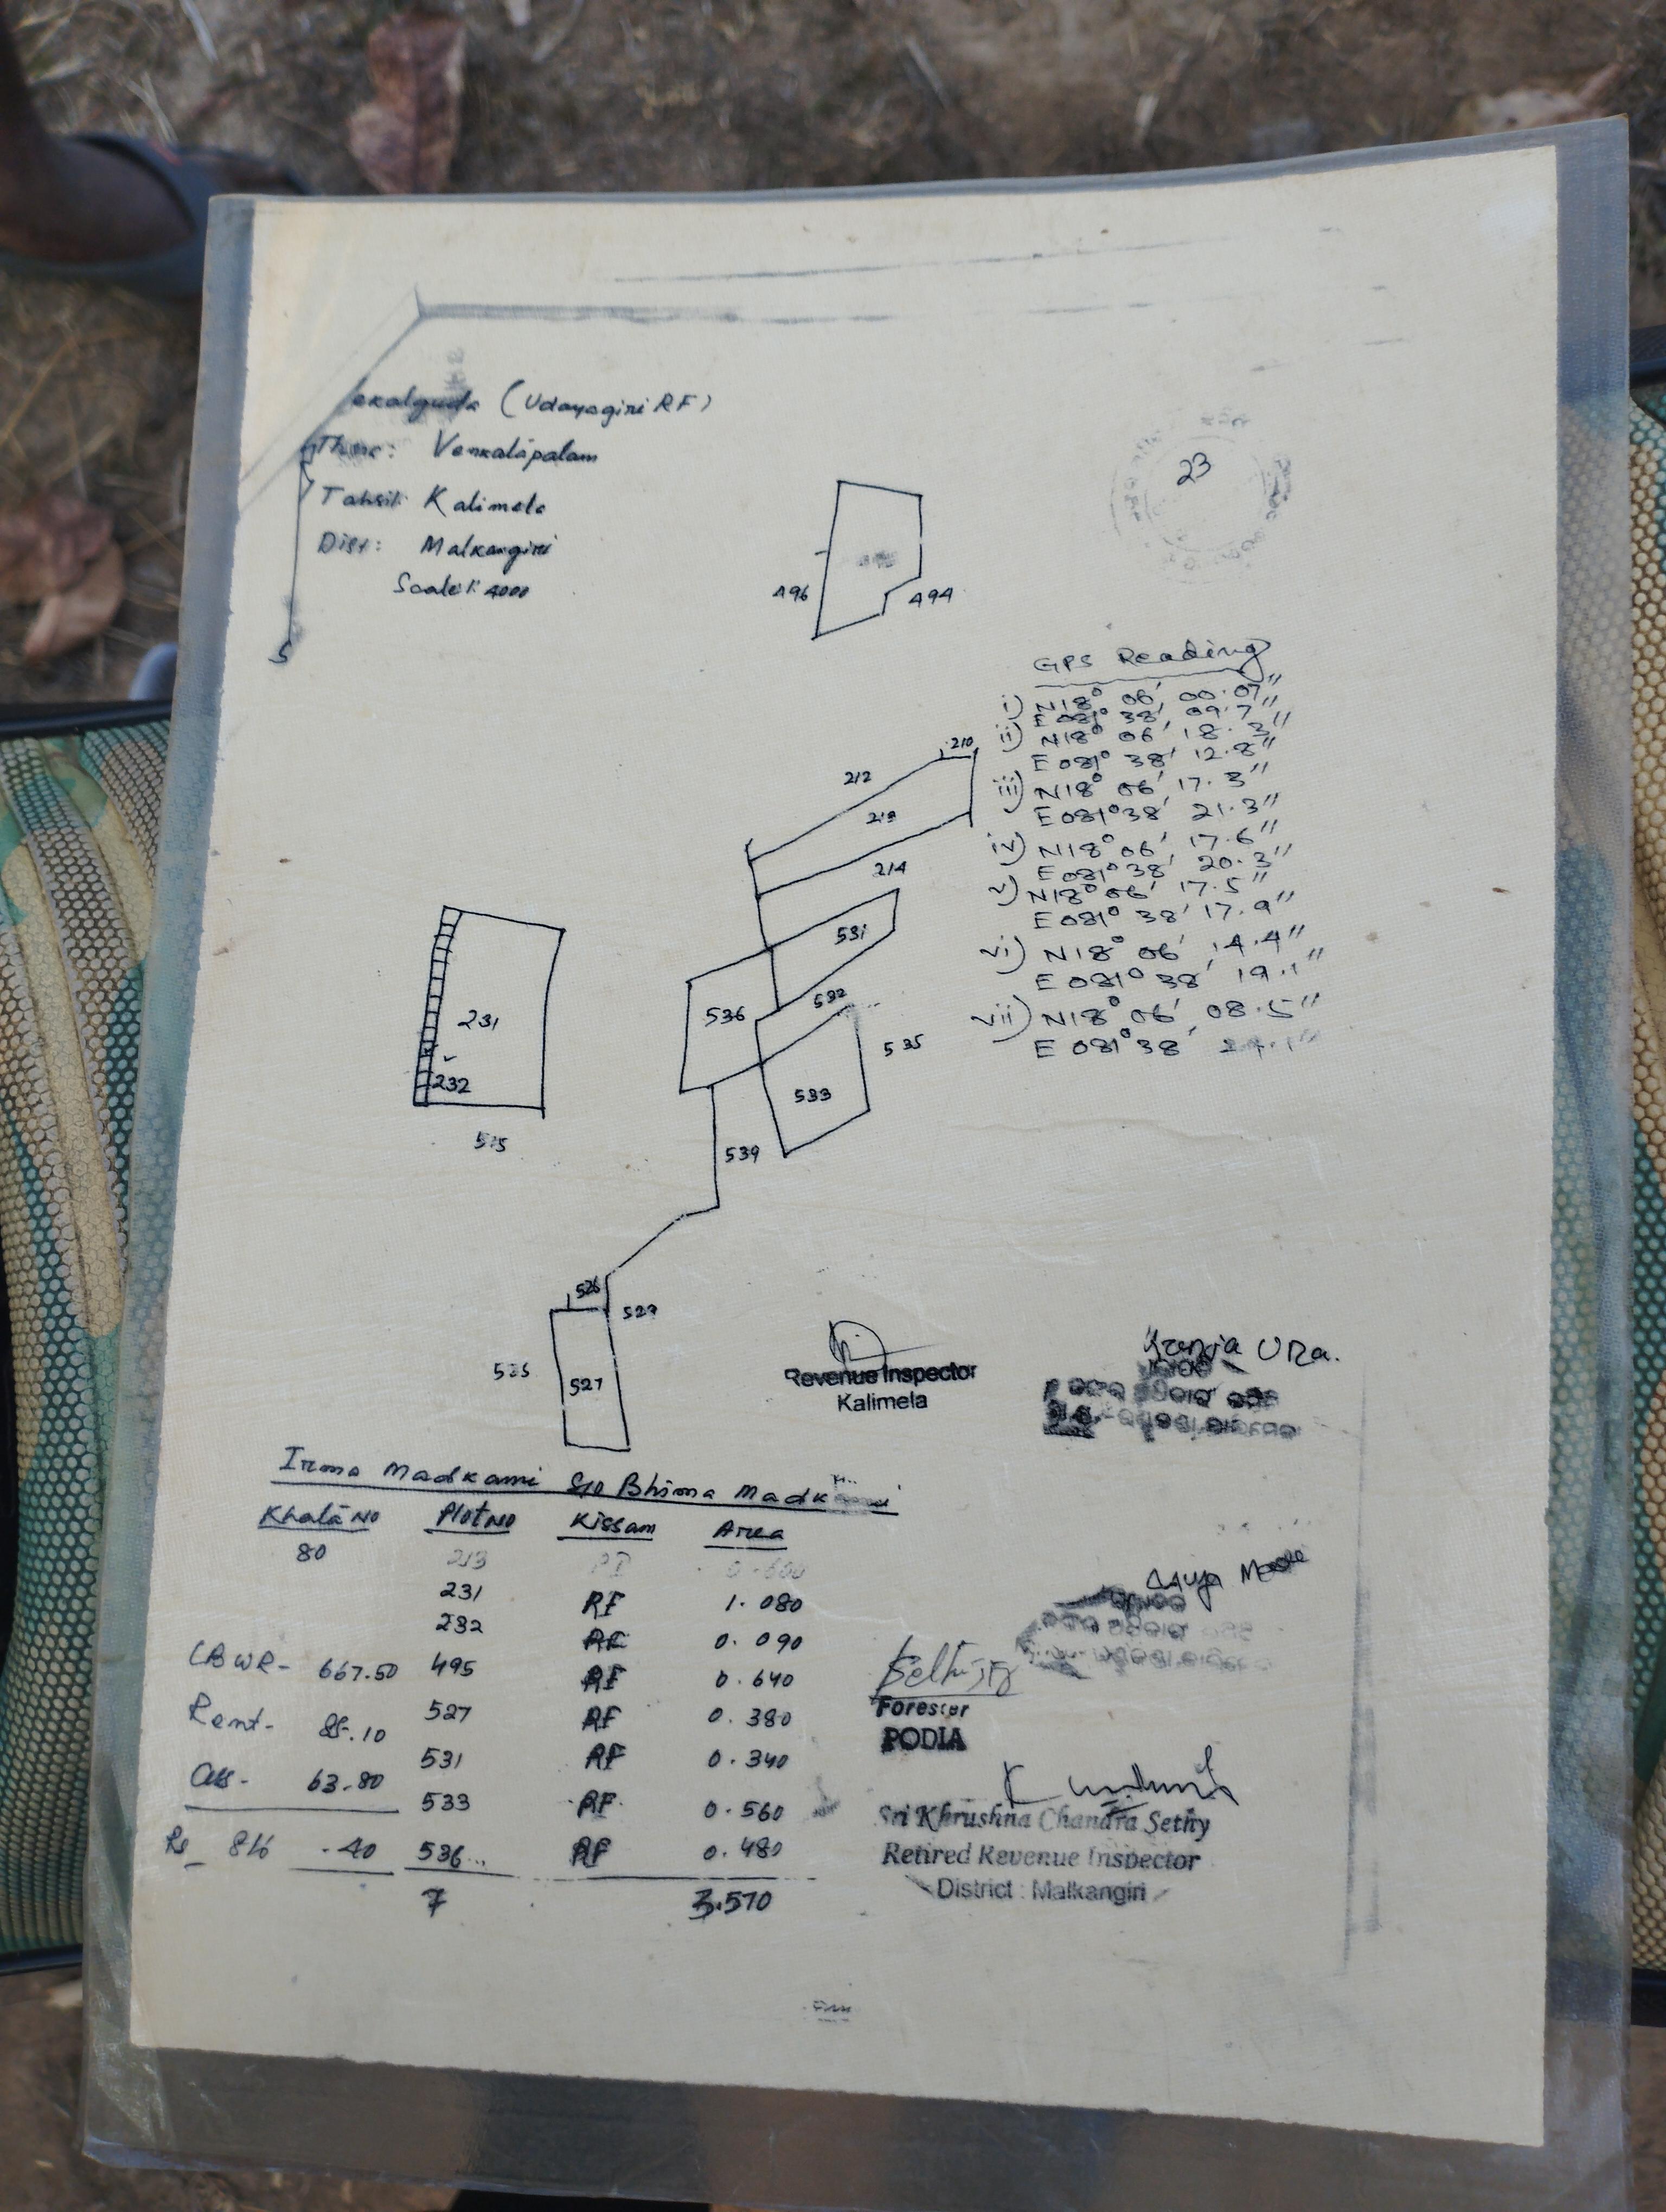 ekalguda (Udayagiri RF)
Thana: Venkatapalam
Tahsil: Kalimela
Dist: Malkangiri
Scale 1: 4000
S
23
496
494
GPS Reading
i) N18° 06' 00.07"
E 081° 38' 09.7"
ii) N18° 06' 18.3"
E 081° 38' 12.8"
iii) N18° 06' 17.3"
E 081° 38' 21.3"
iv) N18° 06' 17.6"
E 081° 38' 20.3"
v) N18° 06' 17.5"
E 081° 38' 17.9"
vi) N18° 06' 14.4"
E 081° 38' 19.1"
vii) N18° 06' 08.5"
E 081° 38'
210
212
213
214
531
532
536
535
533
539
231
232
515
526
529
525
527
Revenue Inspector
Kalimela
Irma Madkami S/o Bhima Madkami
Khata No Plot No Kissam Area
80 213
231 RF 1.080
232 RF 0.090
CBWR- 667.50 495 RF 0.640
Rent- 85.10 527 RF 0.380
531 RF 0.340
63.80
533 RF 0.560
Rs 816 .40 536 RF 0.480
7 3.570
Forester
PODIA
Sri Khrushna Chandra Sethy
Retired Revenue Inspector
District : Malkangiri